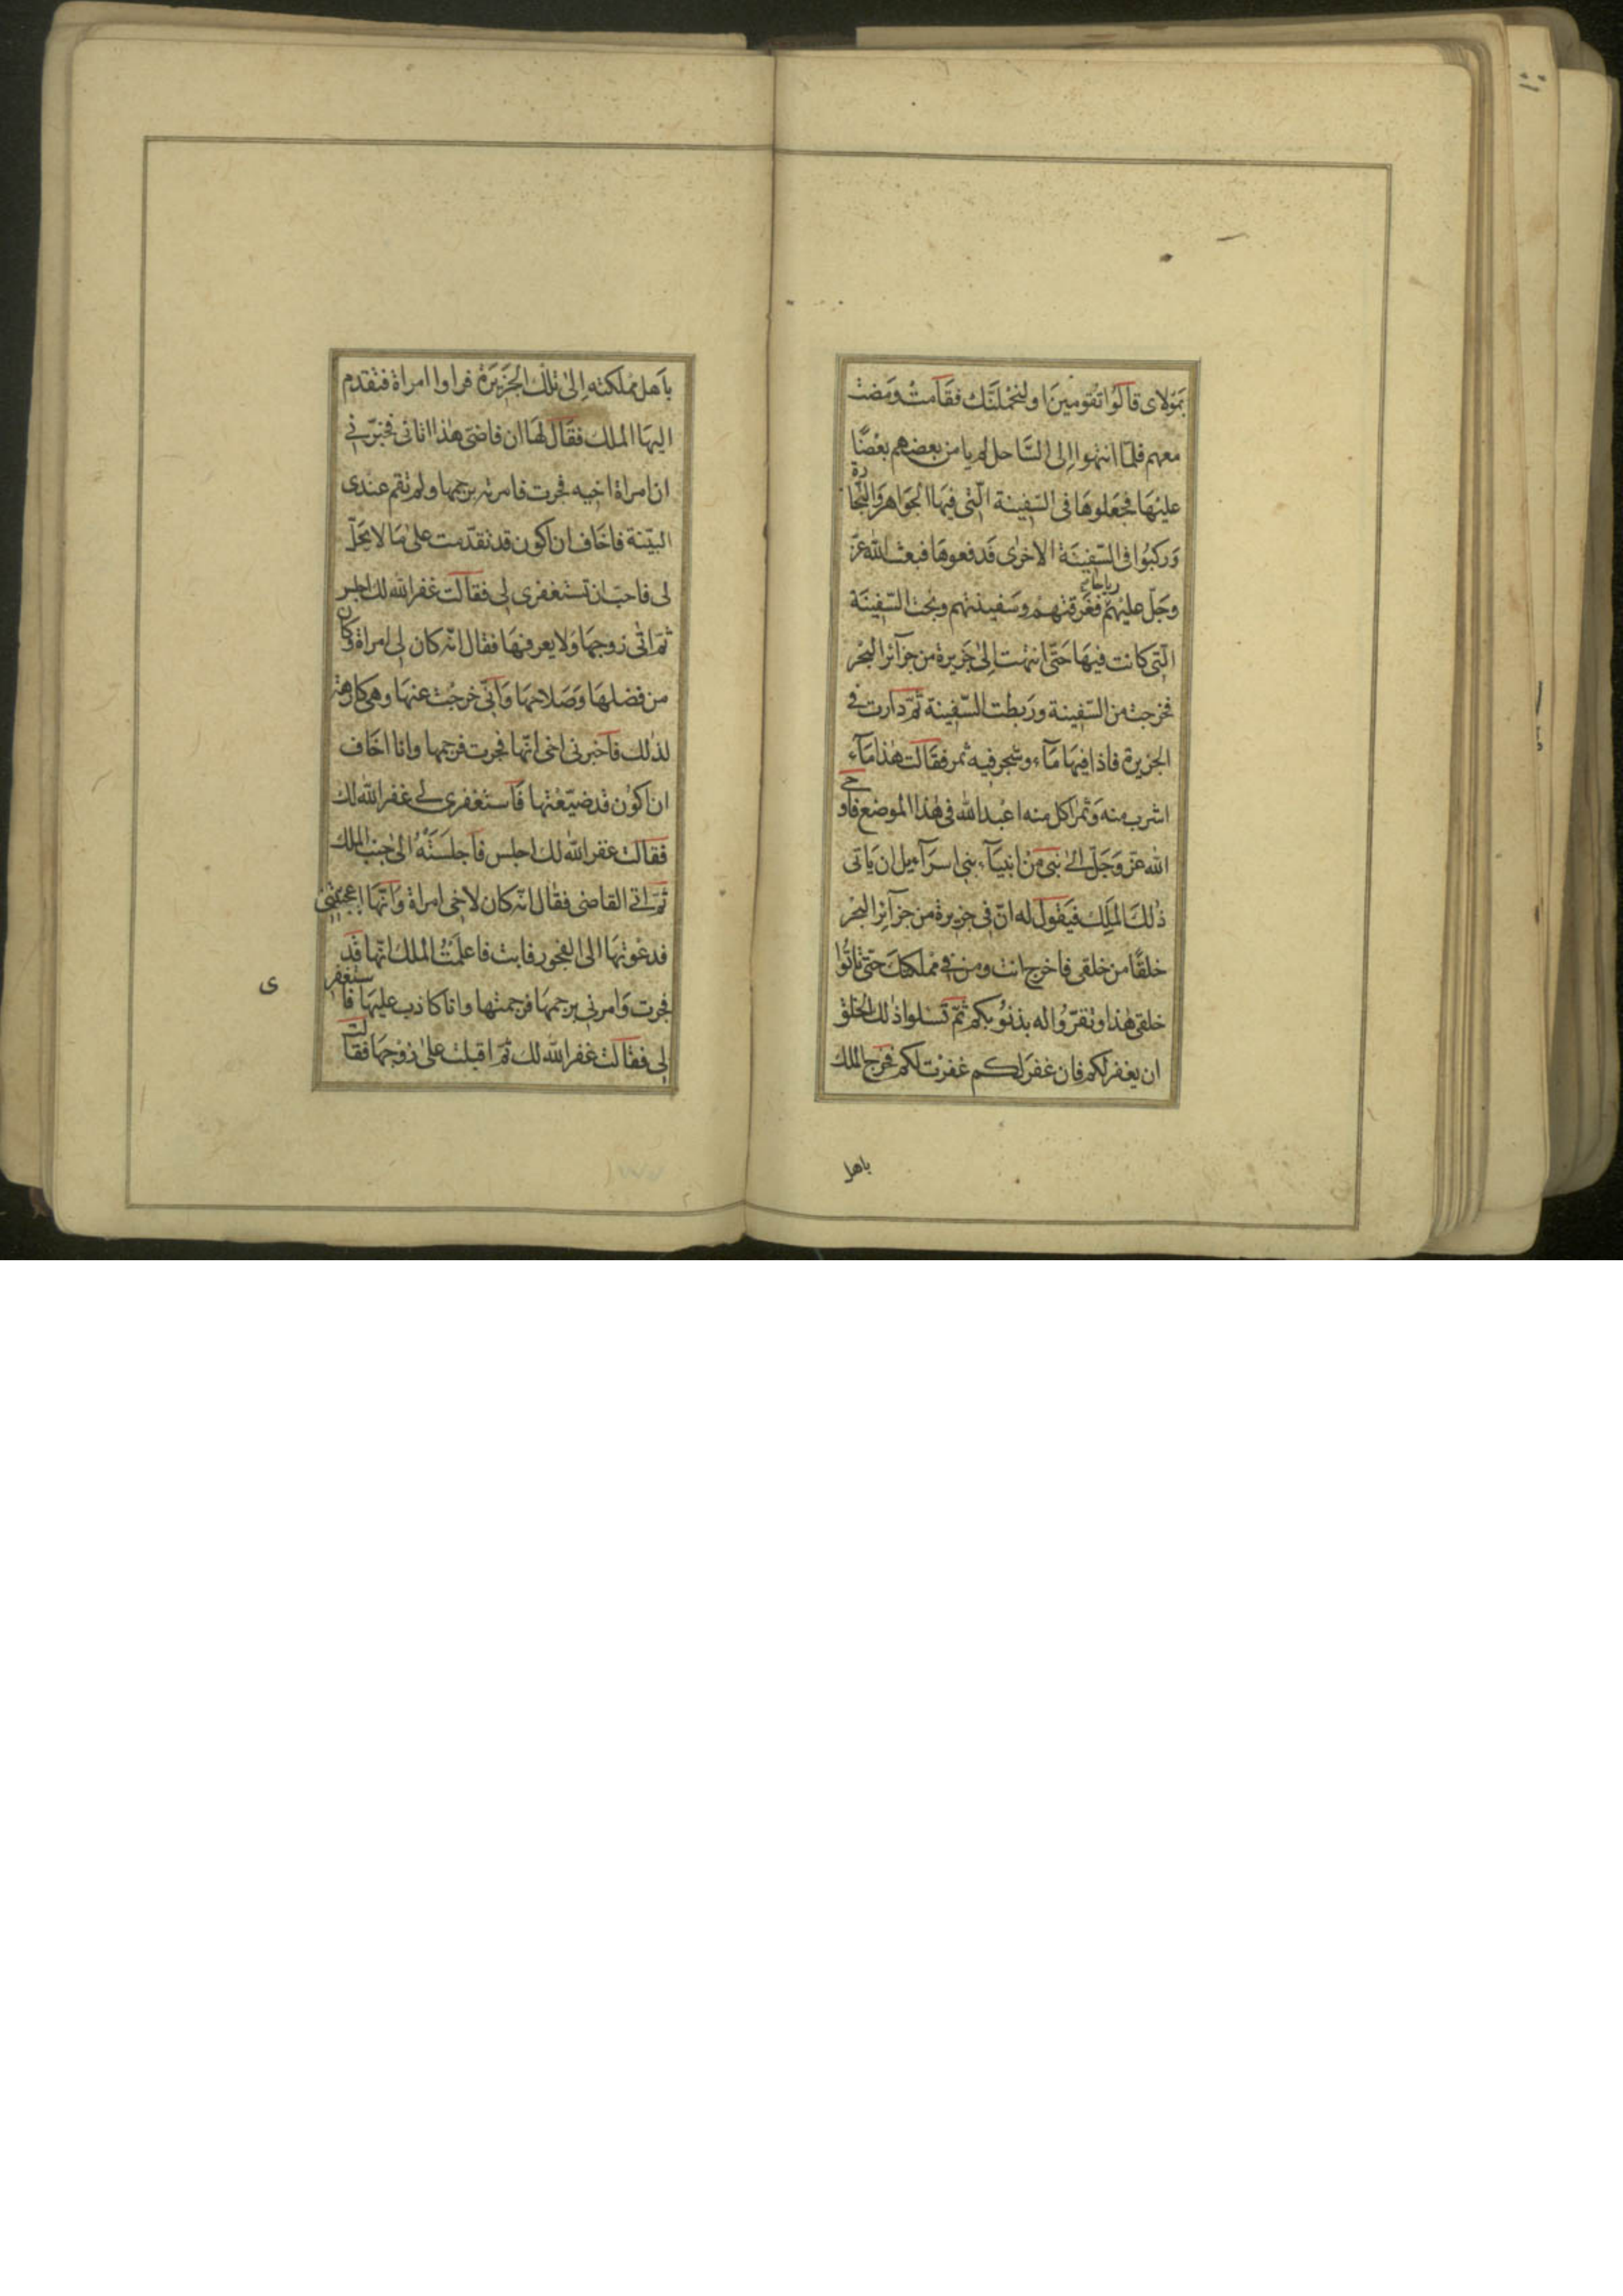 بمولای قالوا تقومین او لنحملنّك فقامت ومضت
معهم فلمّا انتهوا الی السّاحل لم یامن بعضهم بعضًا
علیها فجعلوها فی السّفینة الّتی فیها الجواهر والتّجارة
ورکبوا فی السّفینة الاخری فدفعوها فبعث الله عزّ
وجلّ علیهم ریاحا فغرقتهم وسفینتهم ونجت السّفینة
الّتی کانت فیها حتّی انتهت الی جزیرة من جزآئر البحر
فخرجت من السّفینة وربطت السّفینة ثمّ دارت فی
الجزیرة فاذا فیها مآء وشجر فیه ثمر فقالت هذا مآء
اشرب منه وثمر اکل منه اعبد الله فی هذا الموضع فاوحی
الله عزّ وجلّ الی نبی من انبیآء بنی اسرآءیل ان یاتی
ذلك الملك فیقول له انّ فی جزیرة من جزآئر البحر
خلقًا من خلقی فاخرج انت ومن فی مملکتك حتّی تاتوا
خلقی هذا وتقرّوا له بذنوبکم ثمّ تسلوا ذلك الخلق
ان یغفر لکم فان غفر لکم غفرت لکم فخرج الملك
باهل
باهل مملکته الی تلك الجزیرة فراوا امراة فتقدم
الیها الملك فقال لها ان قاضیّ هذا اتانی فخبّرنی
ان امراة اخیه فجرت فامرته برجمها ولم تقم عندی
البیّنة فاخاف ان اکون قد تقدّمت علی ما لا یحلّ
لی فاحبّ ان تستغفری لی فقالت غفر الله لك اجلس
ثمّ اتی زوجها ولا یعرفها فقال انّه کان لی امراة وکان
من فضلها وصلاحها وانّی خرجت عنها وهی کارهة
لذلك فاخبرنی اخی انّها فجرت فرجمها وانا اخاف
ان اکون قد ضیّعتها فاستغفری لی غفر الله لك
فقالت غفر الله لك اجلس فاجلسته الی جنب الملك
ثمّ اتی القاضی فقال انّه کان لاخی امراة وانّها اعجبتنی
فدعوتها الی الفجور فابت فاعلمت الملك انّها قد
فجرت وامرنی برجمها فرجمتها وانا کاذب علیها فاستغفر
ی
لی فقالت غفر الله لك ثمّ اقبلت علی زوجها فقالت